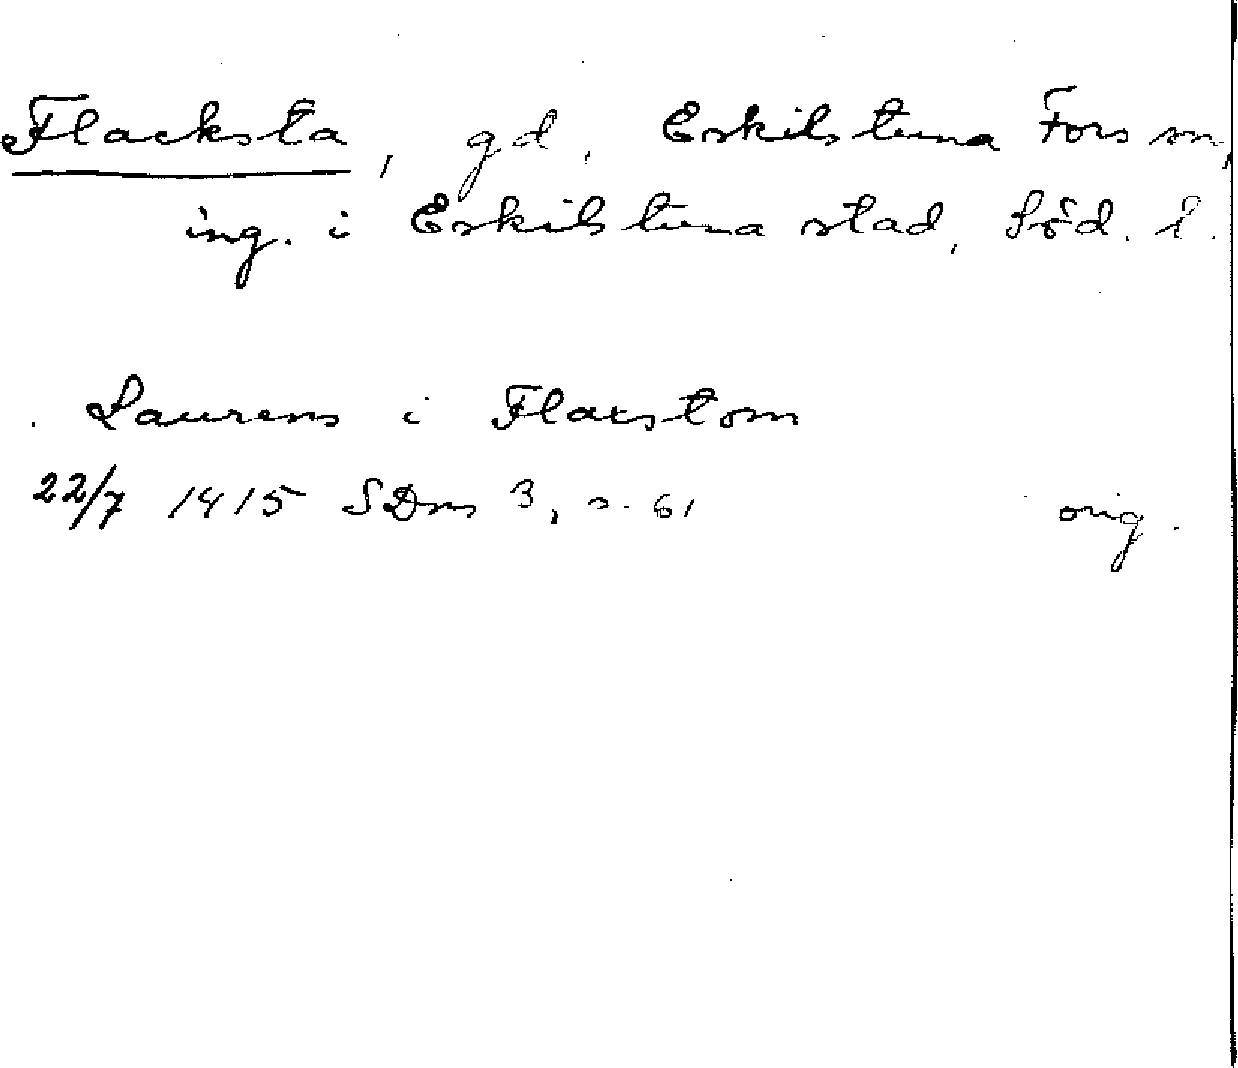 Flacksta, gd, Eskilstuna Fors sn,
ing. i Eskilstuna stad, Söd. l.
Laurens i Flacstom
22/7 1415 SDns 3, s. 61 orig.